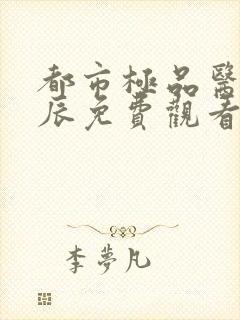 都市極品醫
辰免費觀看
李夢凡